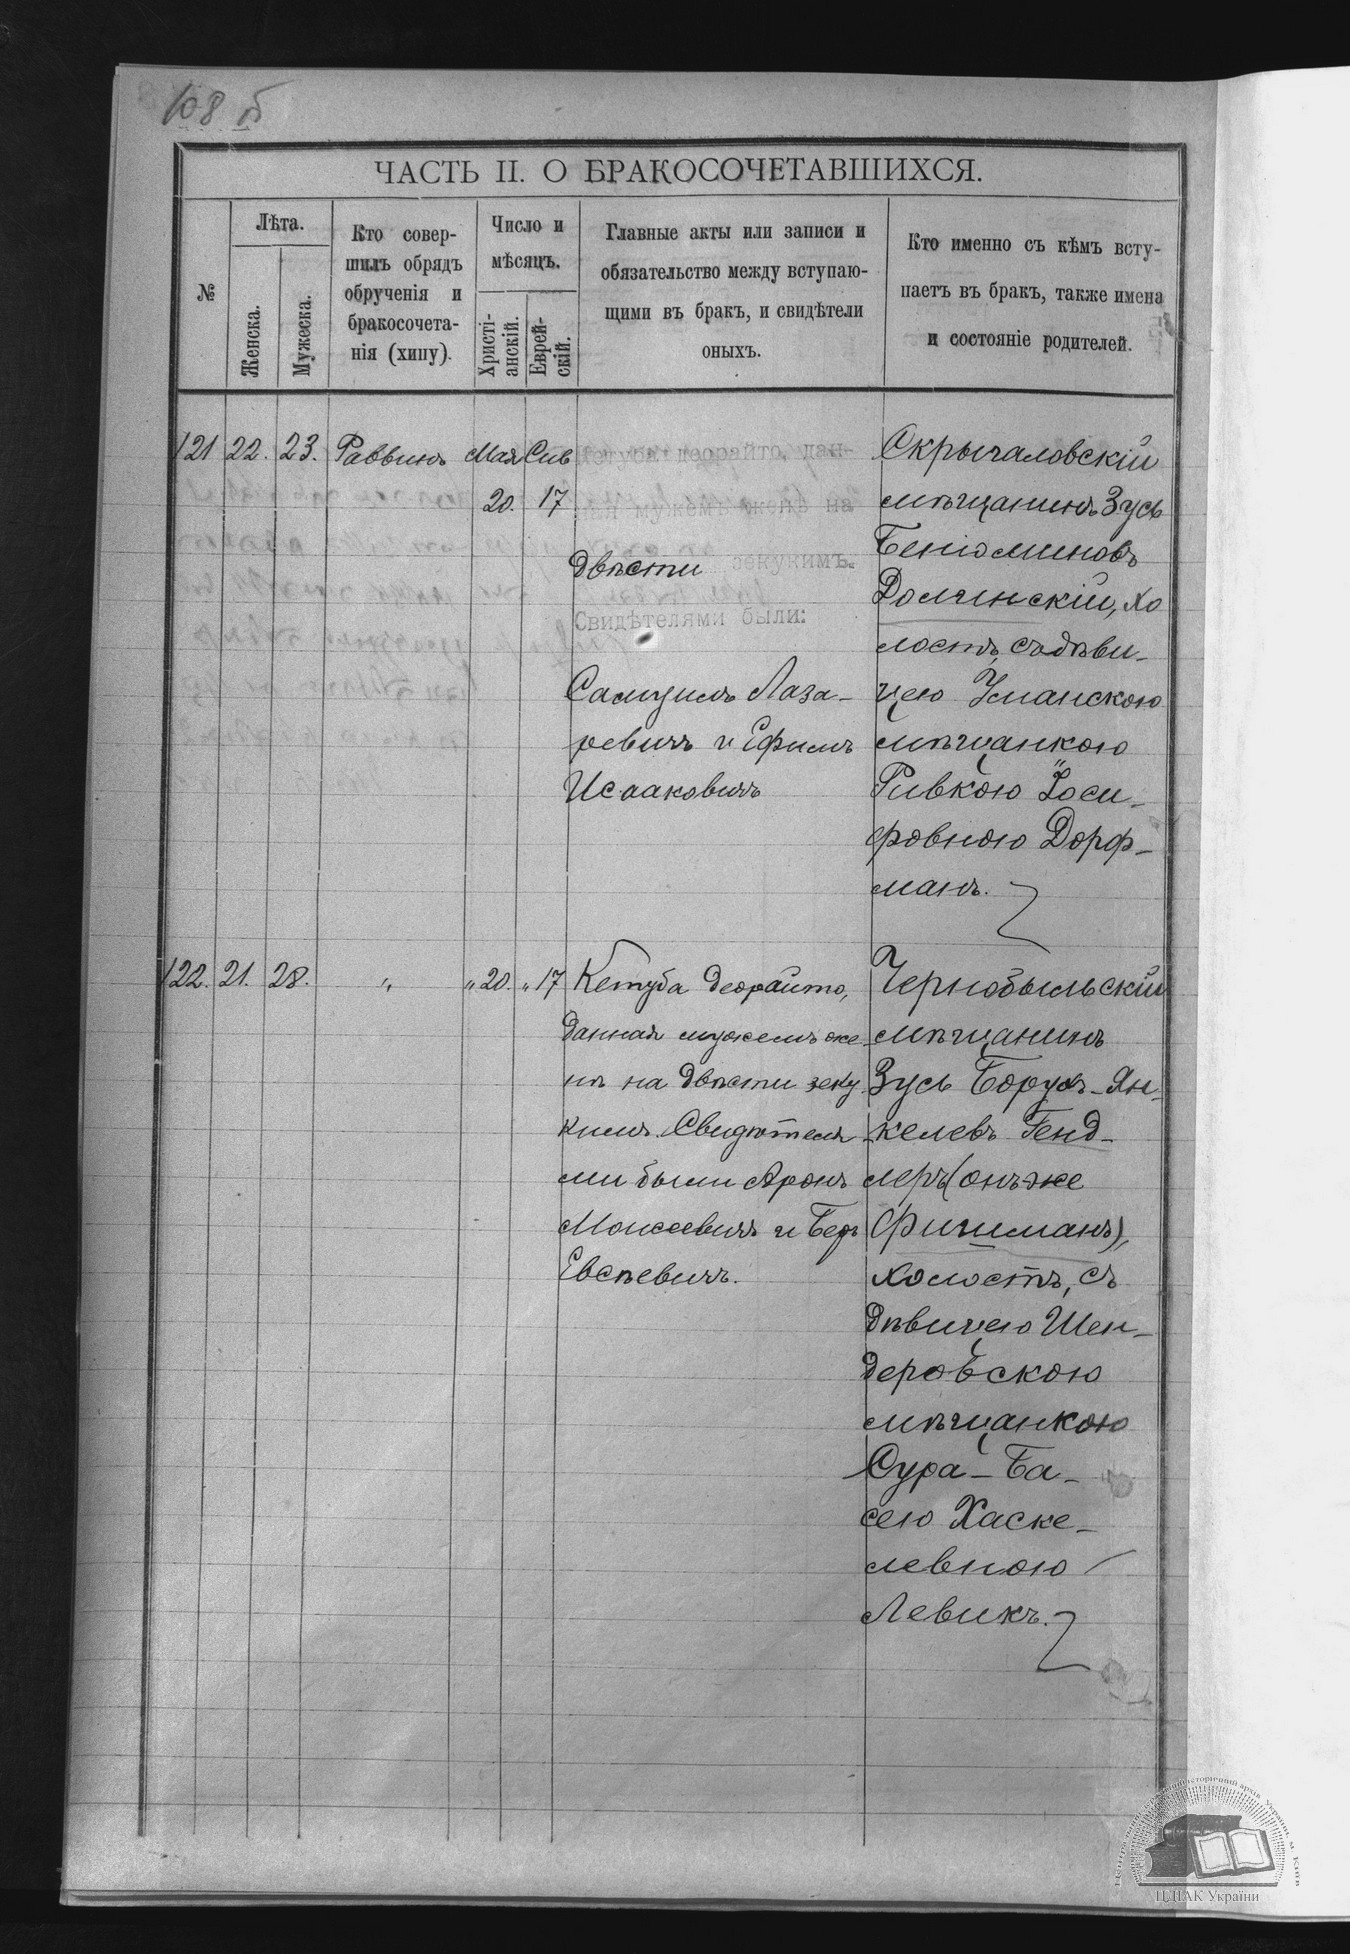 108 б
ЧАСТЬ II. О БРАКОСОЧЕТАВШИХСЯ.
№
Лѣта.
Женска.
Мужеска.
Кто совер-
шилъ обрядъ
обрученія и
бракосочета-
нія (хипу).
Число и
мѣсяцъ.
Христі-
анскій.
Еврей-
скій.
Главные акты или записи и
обязательство между вступаю-
щими въ бракъ, и свидѣтели
оныхъ.
Кто именно съ кѣмъ всту-
паетъ въ бракъ, также имена
и состояніе родителей.
121 22. 23. Раввинъ Мая Сив
20. 17
Кетуба деорайто, дан-
ная мужемъ женѣ на
двѣсти зекукимъ.
Свидѣтелями были:
Самуилъ Лаза-
ревичъ и Ефимъ
Исааковичъ
Скрыгаловскій
мѣщанинъ Зусь
Беніоминовъ
Долчинскій, хо
лостъ, съ дѣви-
цею Уманскою
мѣщанкою
Ривкою Іоси-
фовною Дорф-
манъ.
122. 21. 28. " " 20. " 17
Кетуба деорайто,
данная мужемъ же-
нѣ на двѣсти зеку
кимъ. Свидѣтеля-
ми были Аронъ
Моисеевичъ и Беръ
Евсѣевичъ.
Чернобыльскій
мѣщанинъ
Зусь Борухъ-Ян-
келевъ Генд-
леръ (онъ же
Фишманъ),
холостъ, съ
дѣвицею Шен-
деровскою
мѣщанкою
Сура-Ба-
сею Хаске-
левною
Левикъ.
ЦДІАК України